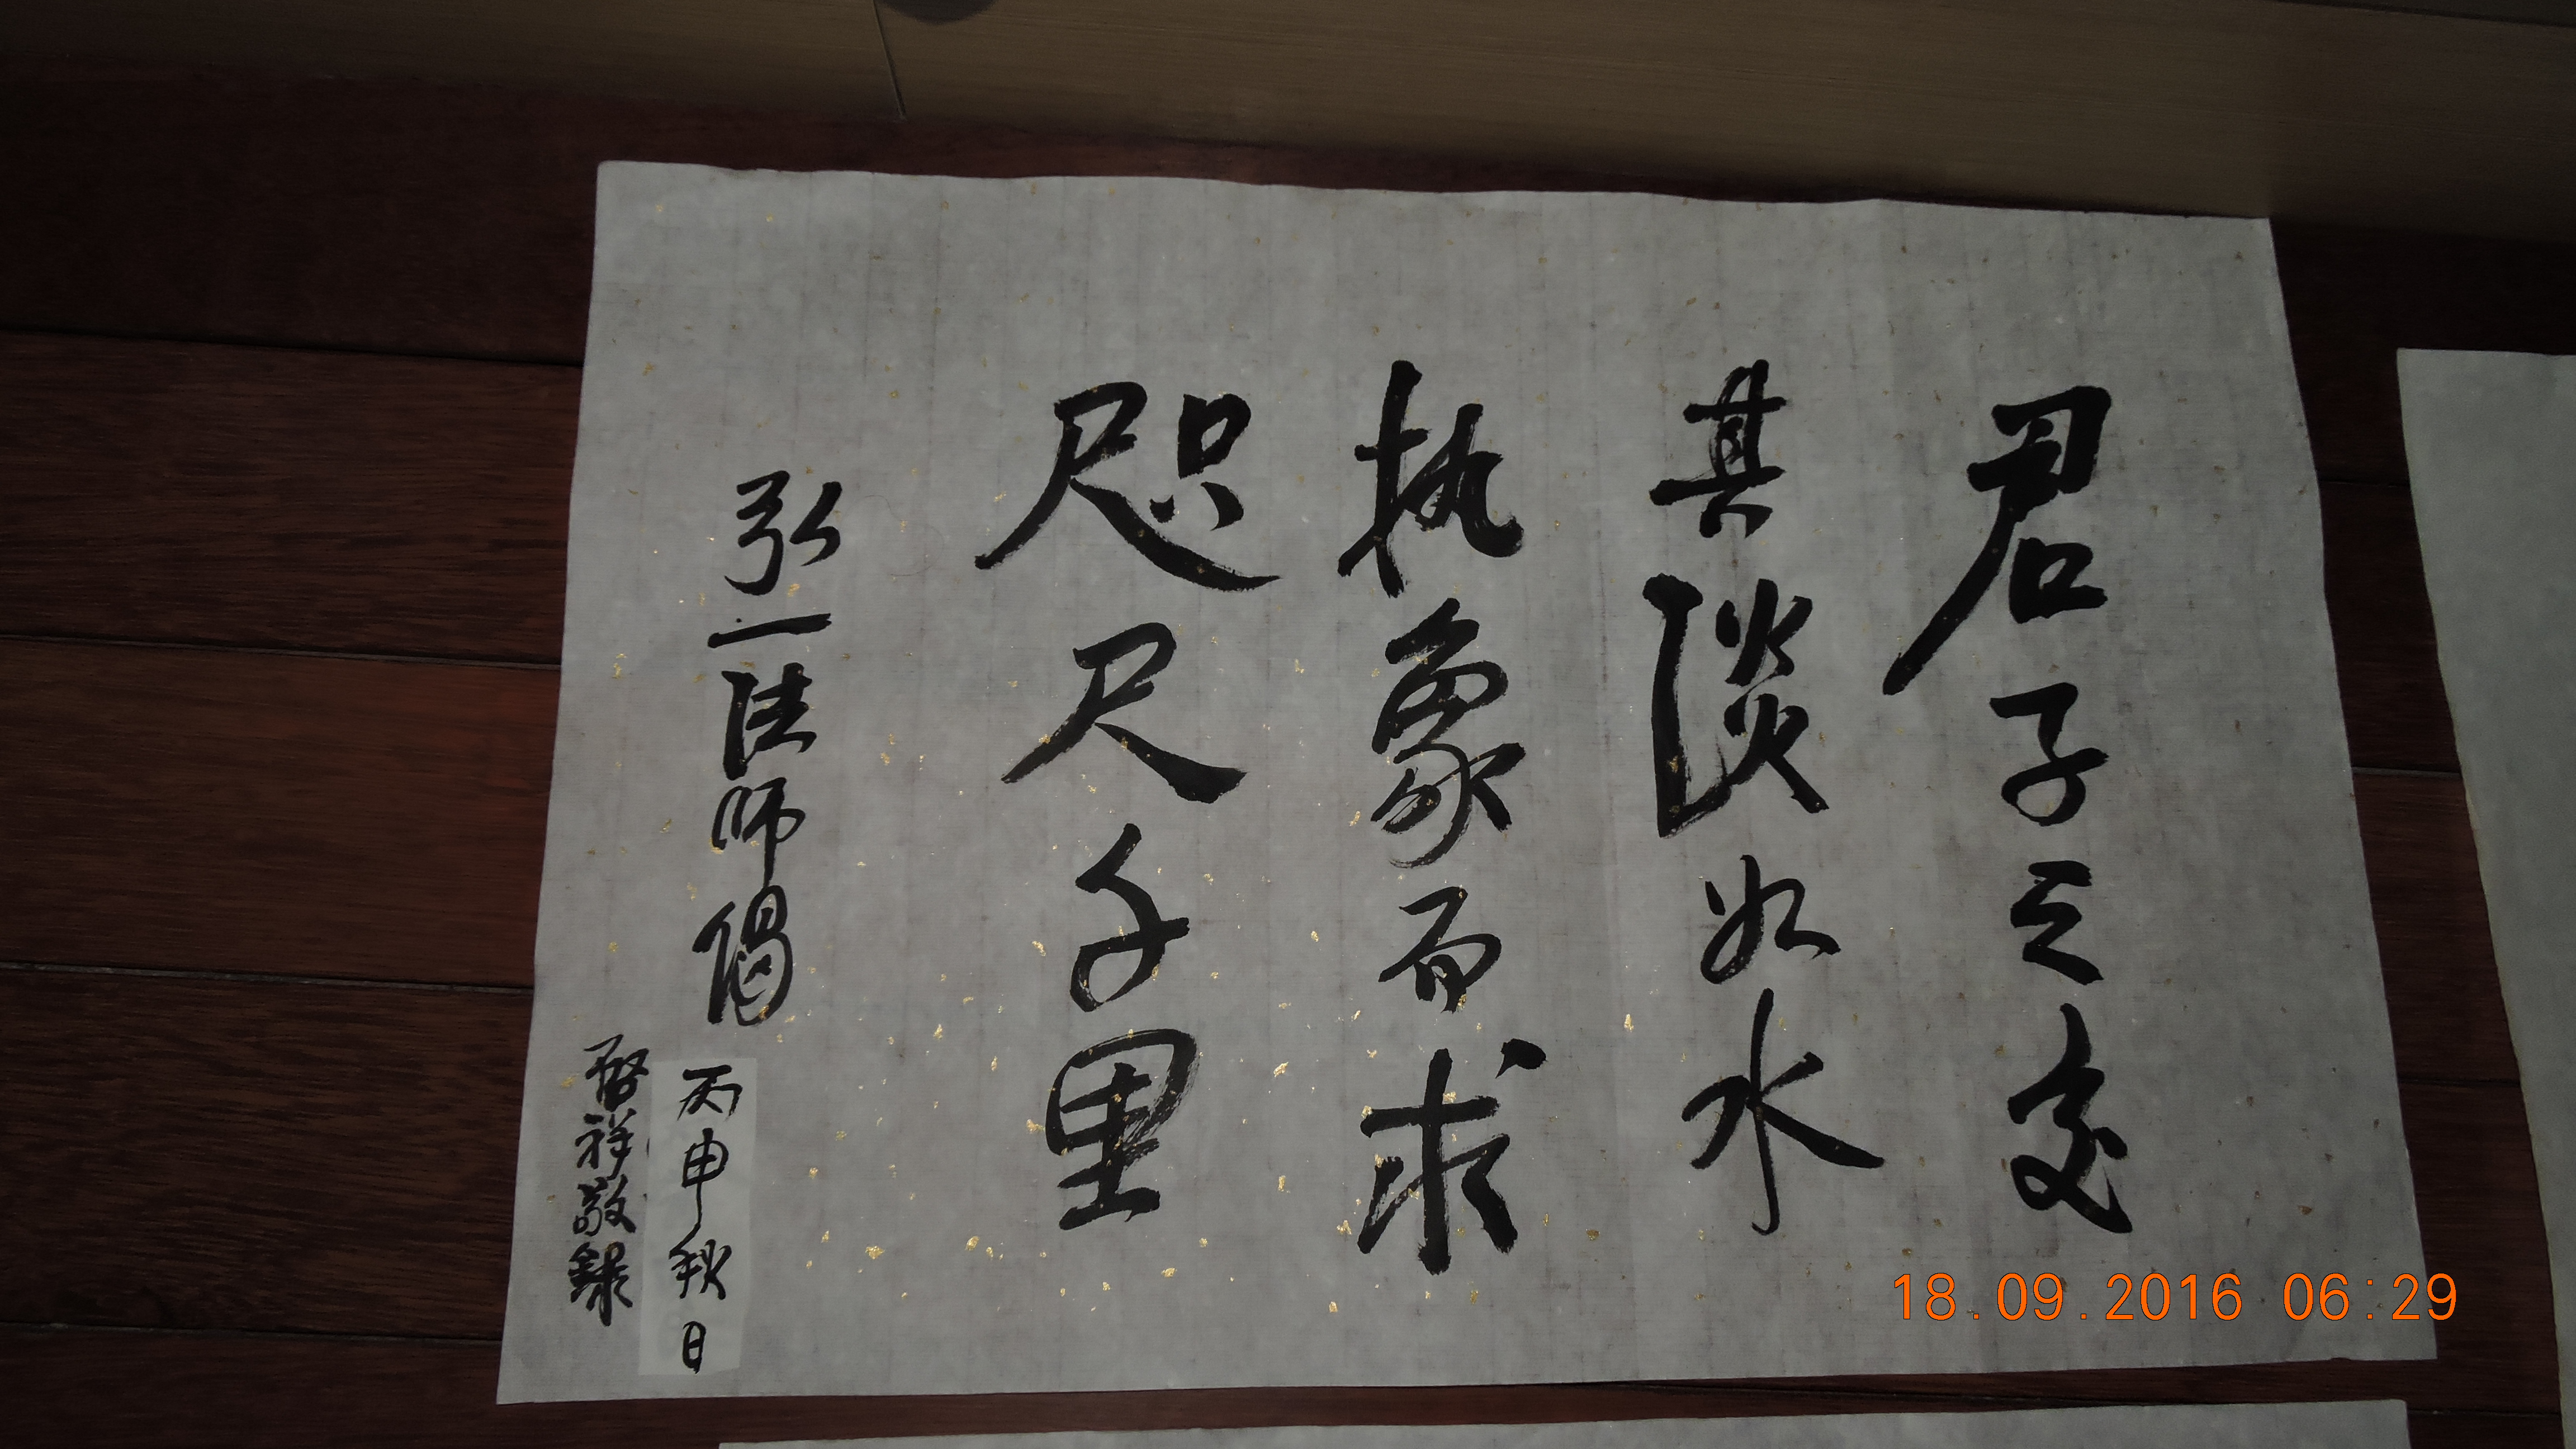 君子之交
其淡如水
执象而求
咫尺千里
弘一法师偈
丙申秋日
啓祥敬録
18.09.2016 06:29